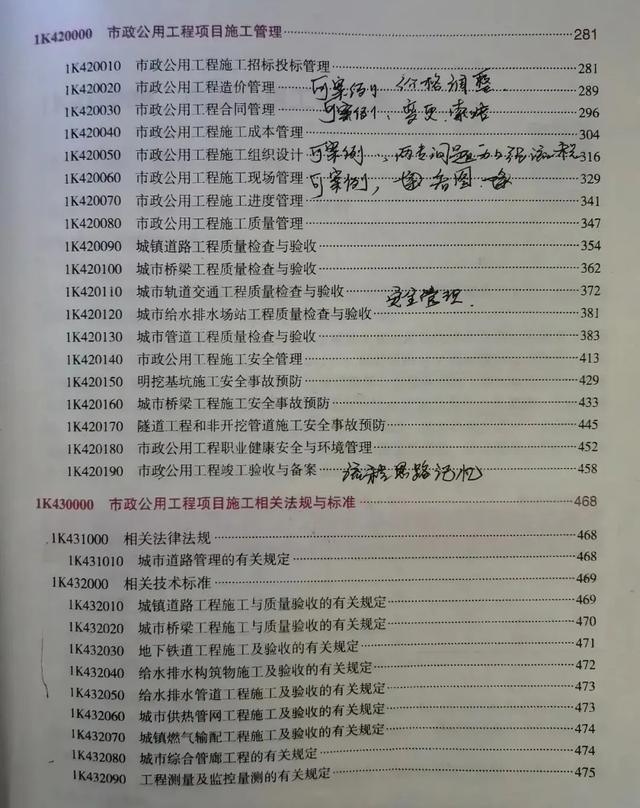 1K420000 市政公用工程项目施工管理 281
1K420010 市政公用工程施工招标投标管理 281
1K420020 市政公用工程造价管理 可案例 价格调整 289
1K420030 市政公用工程合同管理 可案例 变更 索赔 296
1K420040 市政公用工程施工成本管理 304
1K420050 市政公用工程施工组织设计 可案例 316
1K420060 市政公用工程施工现场管理 可案例, 329
1K420070 市政公用工程施工进度管理 341
1K420080 市政公用工程施工质量管理 347
1K420090 城镇道路工程质量检查与验收 354
1K420100 城市桥梁工程质量检查与验收 362
1K420110 城市轨道交通工程质量检查与验收 372
安全管理
1K420120 城市给水排水场站工程质量检查与验收 381
1K420130 城市管道工程质量检查与验收 383
1K420140 市政公用工程施工安全管理 413
1K420150 明挖基坑施工安全事故预防 429
1K420160 城市桥梁工程施工安全事故预防 433
1K420170 隧道工程和非开挖管道施工安全事故预防 445
1K420180 市政公用工程职业健康安全与环境管理 452
1K420190 市政公用工程竣工验收与备案 流程思路记忆 458
1K430000 市政公用工程项目施工相关法规与标准 468
1K431000 相关法律法规 468
1K431010 城市道路管理的有关规定 468
1K432000 相关技术标准 469
1K432010 城镇道路工程施工与质量验收的有关规定 469
1K432020 城市桥梁工程施工与质量验收的有关规定 470
1K432030 地下铁道工程施工及验收的有关规定 471
1K432040 给水排水构筑物施工及验收的有关规定 472
1K432050 给水排水管道工程施工及验收的有关规定 473
1K432060 城市供热管网工程施工及验收的有关规定 473
1K432070 城镇燃气输配工程施工及验收的有关规定 474
1K432080 城市综合管廊工程的有关规定 474
1K432090 工程测量及监控量测的有关规定 475